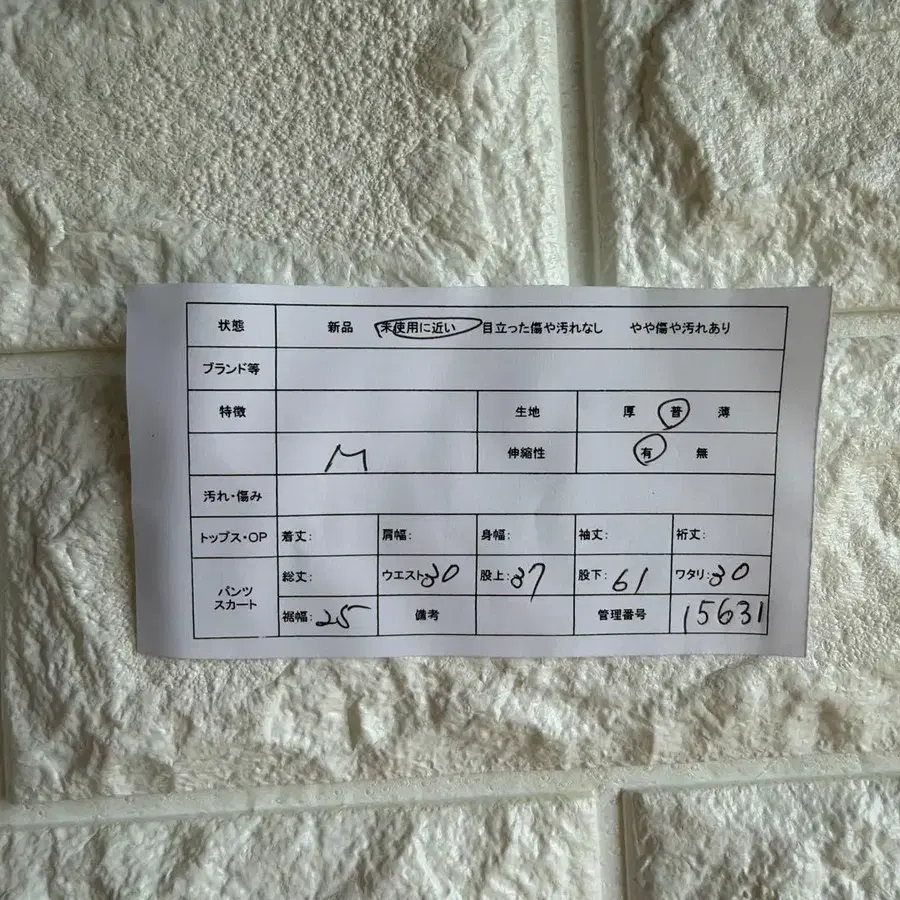 状態 新品 未使用に近い 目立った傷や汚れなし やや傷や汚れあり
ブランド等
特徴 生地 厚 普 薄
M 伸縮性 有 無
汚れ・傷み
トップス・OP 着丈: 肩幅: 身幅: 袖丈: 裄丈:
パンツ スカート 総丈: ウエスト:30 股上:37 股下:61 ワタリ:30
裾幅:25 備考 管理番号 15631